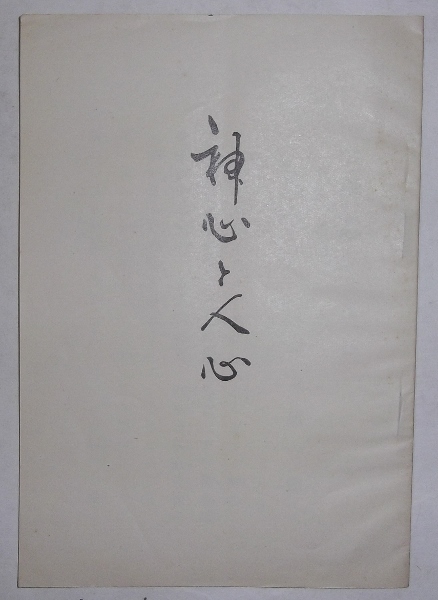 神心と人心